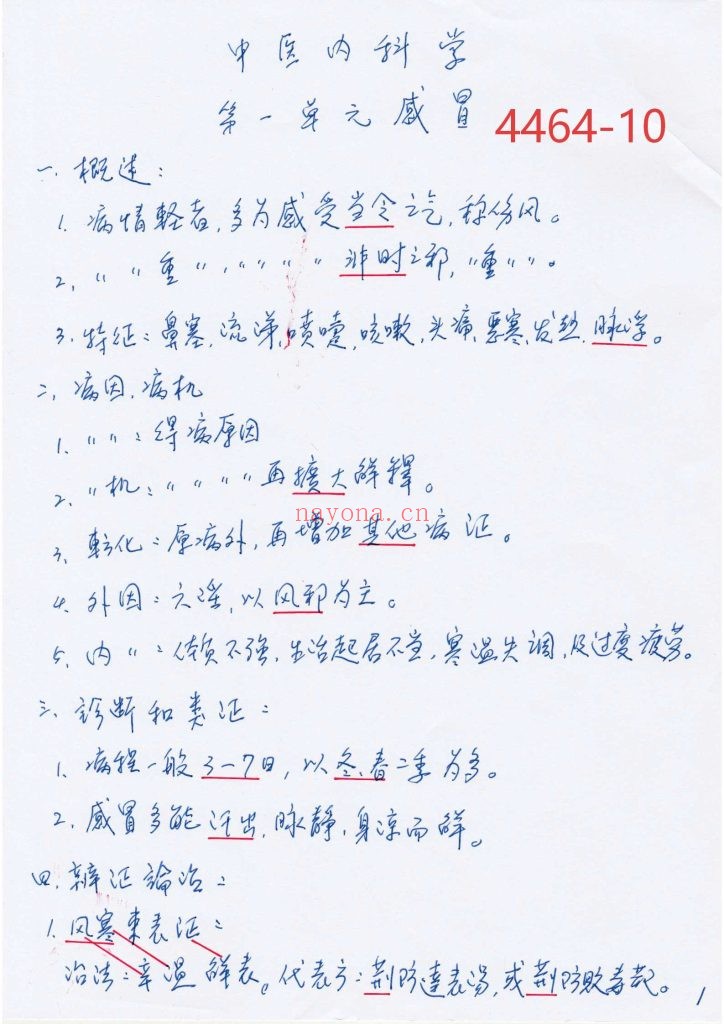 中医内科学
第一单元感冒 4464-10
一、概述：
1. 病情軽者，多为感受当令之气，称伤风。
2. 〃〃重〃，〃〃〃〃非时之邪，〃重〃〃。
3. 特征：鼻塞，流涕，喷嚏，咳嗽，头痛，恶寒，发热，脉浮。
二、病因，病机
1. 〃〃：得病原因
2. 〃机：〃〃〃〃再擴大解釋。
nayona.cn
3. 転化：原病外，再增加其他病证。
4. 外因：六淫，以风邪为主。
5. 内〃：体质不强，生活起居不当，寒温失调，及过度疲劳。
三、診断和类证：
1. 病程一般3-7日，以冬、春二季为多。
2. 感冒多能汗出，脉静，身凉而解。
四、辨证論治：
1. 风寒束表证：
治法：辛温解表。代表方：荆防達表湯，或荆防败毒散。
1